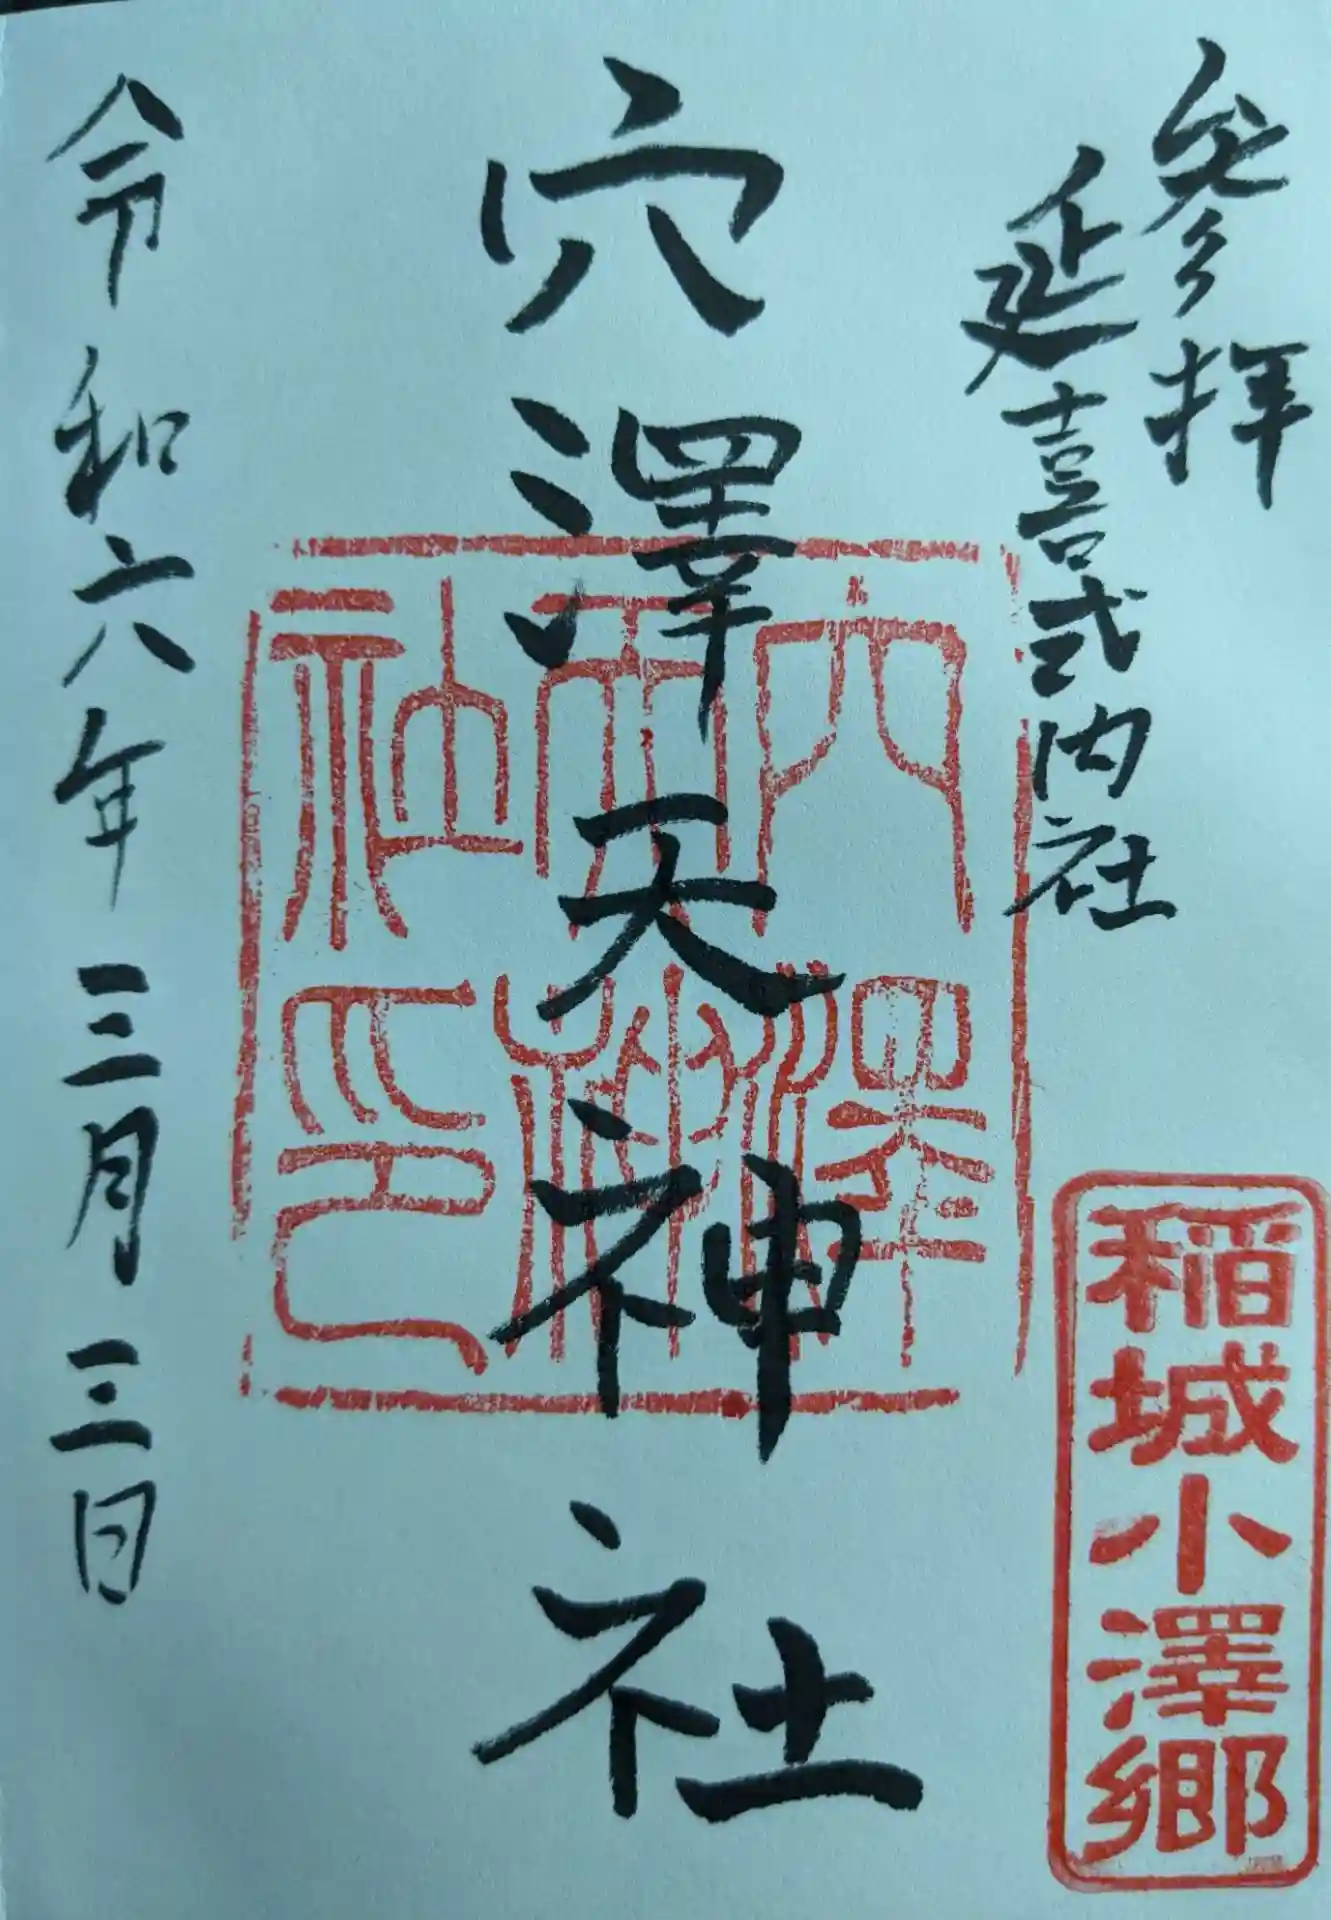 参拝
延喜式内社
稲城小澤郷
穴澤天神社
穴澤天神社印
令和六年三月三日